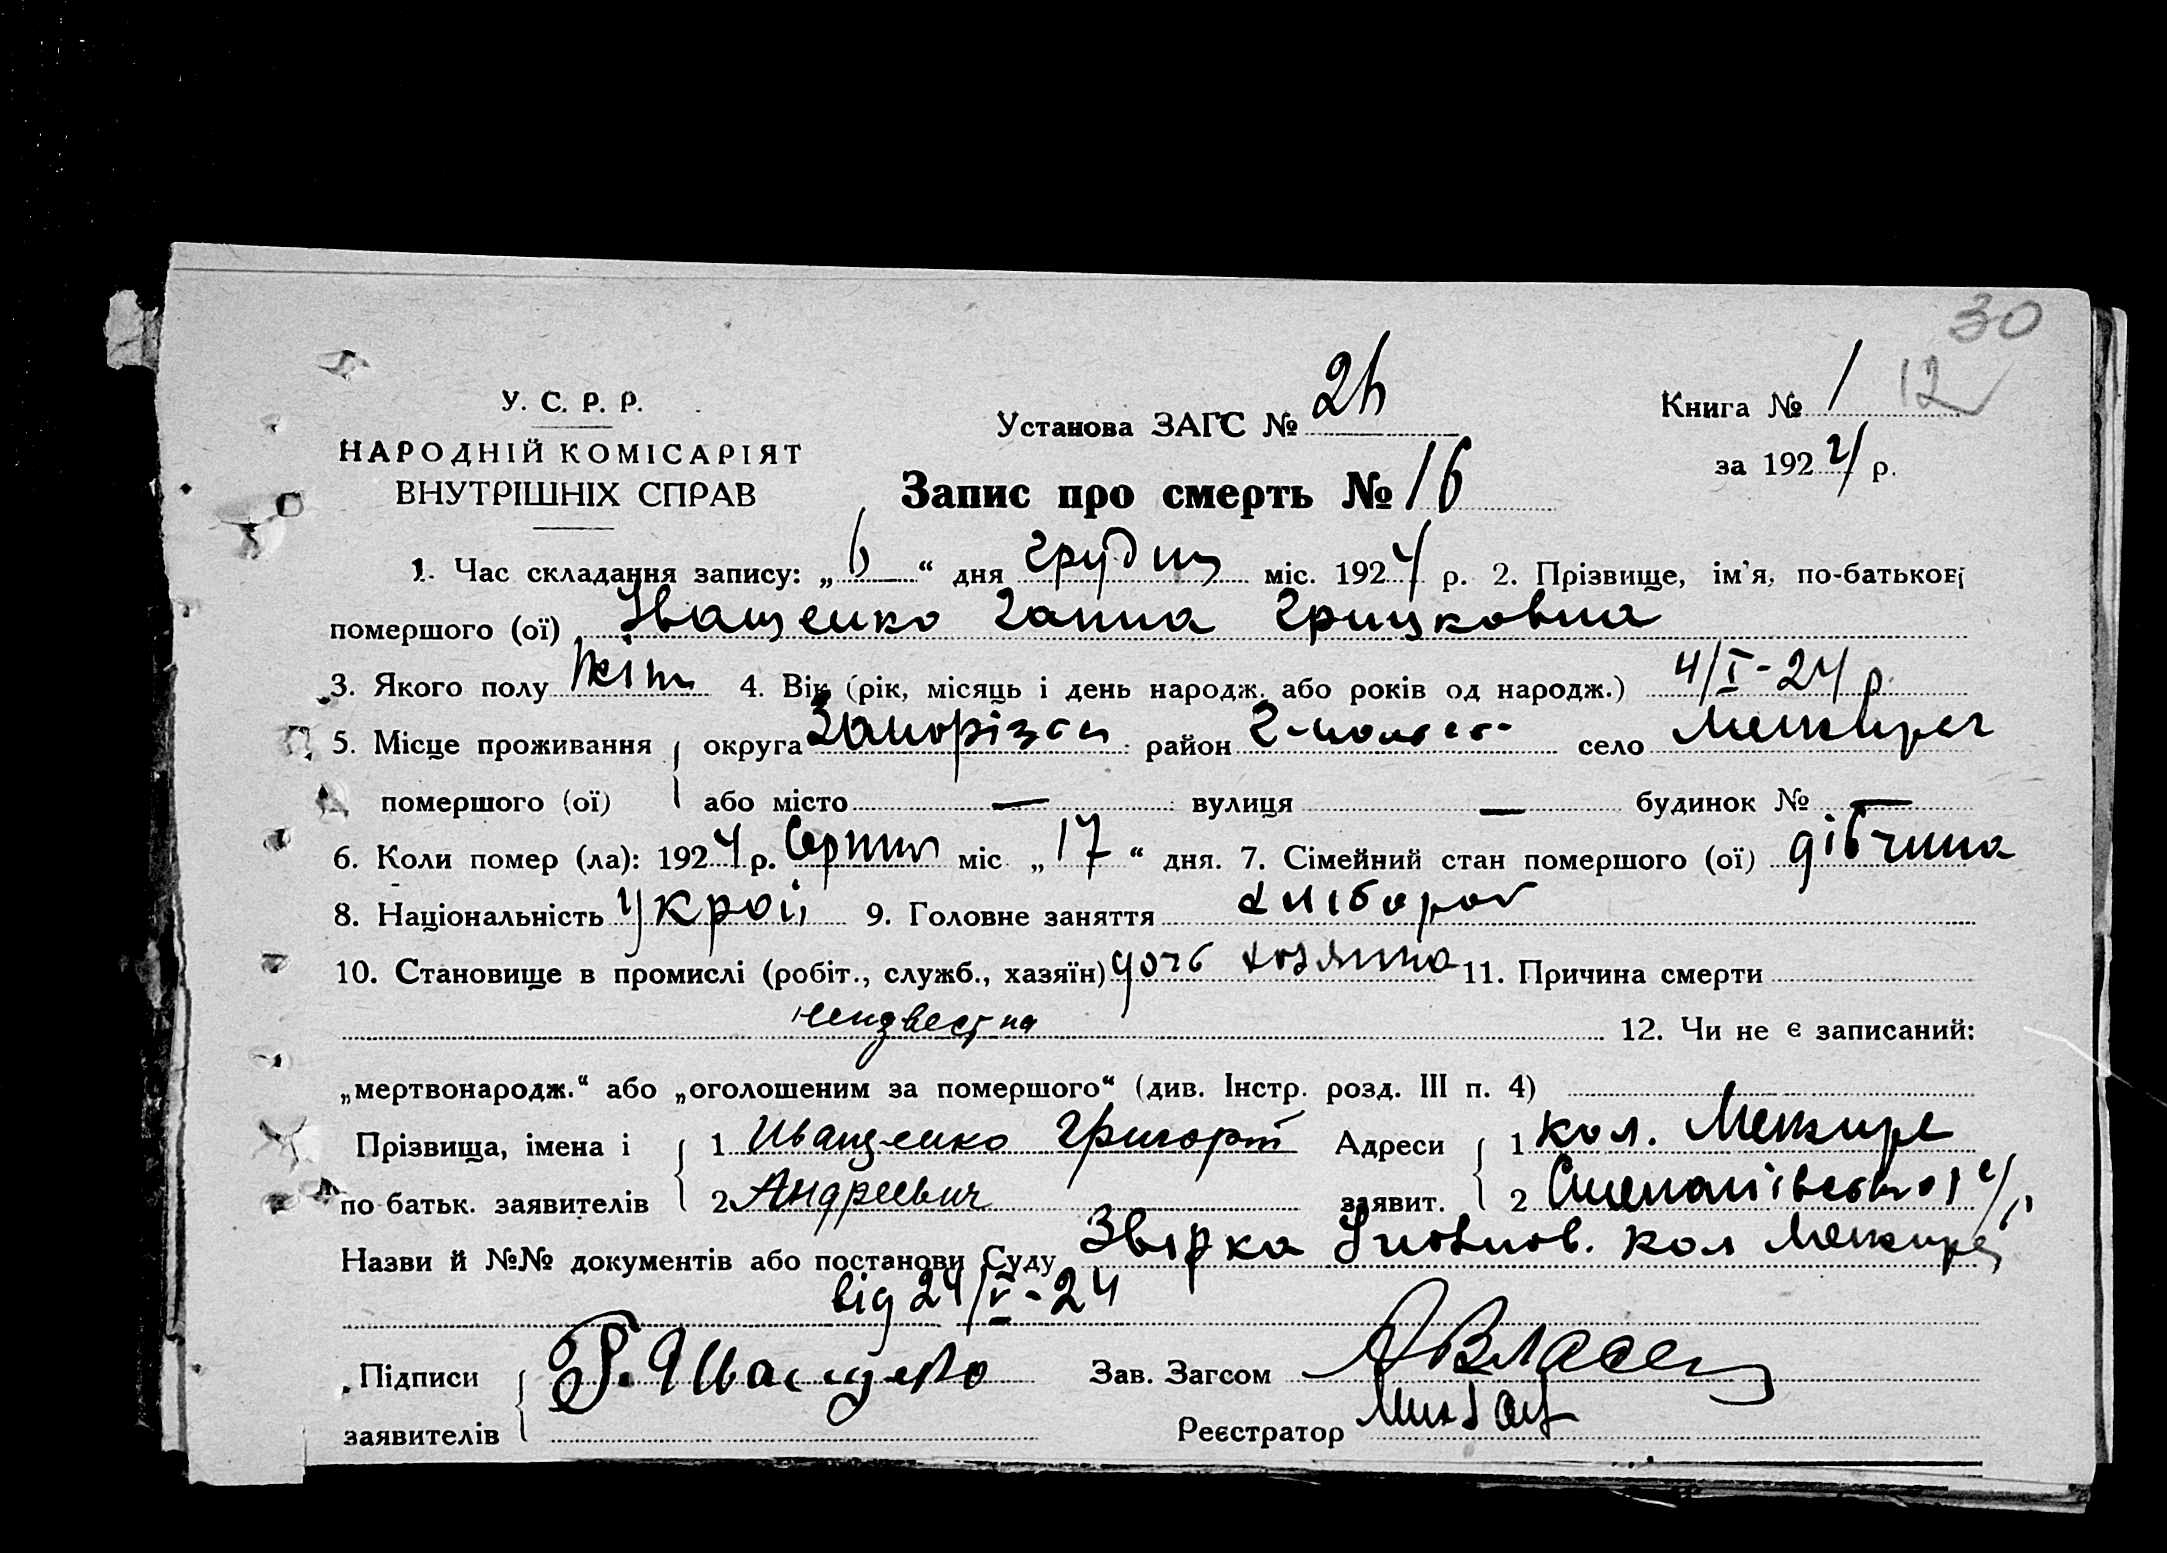 30
12
У. С. Р. Р.
НАРОДНІЙ КОМІСАРІЯТ
ВНУТРІШНІХ СПРАВ
Установа ЗАГС № 2
Книга № 1
за 1924 р.
Запис про смерть № 16
1. Час складання запису: „6“ дня грудня міс. 1924 р. 2. Прізвище, ім'я, по-батькові
помершого (ої) Іващенко Ганна Грицковна
3. Якого полу жіт 4. Вік (рік, місяць і день народж. або років од народж.) 4/I-24 р.
5. Місце проживання округа Запорізьк район село Межиреч
помершого (ої) або місто — вулиця — будинок № —
6. Коли помер (ла): 1924 р. Серпня міс „17“ дня. 7. Сімейний стан помершого (ої) дівчина
8. Національність Украї 9. Головне заняття хлібороб
10. Становище в промислі (робіт., служб., хазяїн) дочь хозяина 11. Причина смерти
неизвестна 12. Чи не є записаний:
„мертвонародж.“ або „оголошеним за помершого“ (див. Інстр. розд. III п. 4)
Прізвища, імена і 1 Иващенко Григорий Адреси 1 кол. Межире
по батьк. заявителів 2 Андреевич заявит. 2
Назви й №№ документів або постанови Суду Звірка Уповнов. кол Межирец
від 24/V-24
Підписи Г. Иващенко Зав. Загсом
заявителів Реєстратор